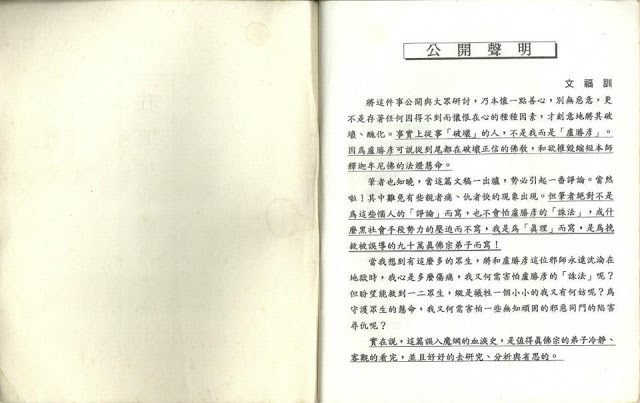 公開聲明
文福訓
將這件事公開與大眾研討，乃本懷一點善心，別無惡意，更
不是存著任何因得不到而懷恨在心的種種因素，才刻意地將其破
壞、醜化。事實上從事「破壞」的人，不是我而是「盧勝彥」。
因為盧勝彥可說從到尾都在破壞正信的佛教，和欲摧毀縮短本師
釋迦牟尼佛的法燈慧命。
筆者也知曉，當這篇文稿一出爐，勢必引起一番諍論。當然
啦！其中難免有些親者痛、仇者快的現象出現。但筆者絕對不是
為這些惱人的「諍論」而寫，也不會怕盧勝彥的「誅法」，或什
麼黑社會手段勢力的壓迫而不寫，我是為「真理」而寫，是為挽
救被誤導的九十萬真佛宗弟子而寫！
當我想到有這麼多的眾生，將和盧勝彥這位邪師永遠沈淪在
地獄時，我心是多麼傷痛，我又何需害怕盧勝彥的「誅法」呢？
但盼望能救到一二眾生，縱是犧牲一個小小的我又有何妨呢？為
守護眾生的慧命，我又何需害怕一些無知頑固的邪惡同門的陷害
尋仇呢？
實在說，這篇誤入魔網的血淚史，是值得真佛宗的弟子冷靜、
客觀的看完，並且好好的去研究、分析與省思的。